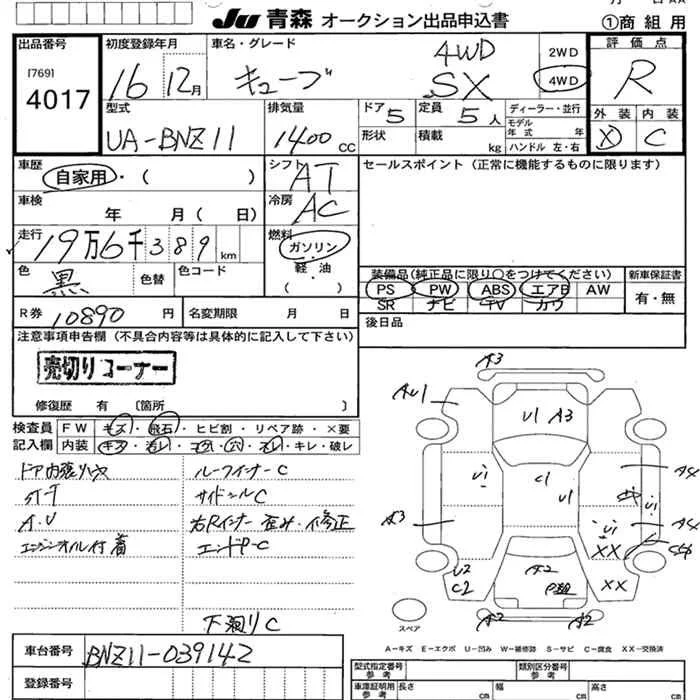 Ju 青森 オークション出品申込書
①商組用
出品番号
[769]
4017
初度登録年月
16 12月
車名・グレード
キューブ
4WD
SX
2WD
4WD
評価点
R
外装 内装
X C
型式
UA-BNZ11
排気量
1400 CC
ドア
5
定員
5人
ディーラー・並行
モデル
年式 年
形状
積載 kg
ハンドル 左・右
車歴
自家用・( )
シフト
AT
セールスポイント(正常に機能するものに限ります)
車検
年 月( 日)
冷房
AC
走行
19万6千389 km
燃料
ガソリン
軽・油
( )
色
黒
色替
色コード
装備品(純正品に限り○をつけてください)
PS PW ABS エアB AW
SR ナビ TV カワ
新車保証書
有・無
R券 10890 円
名変期限 月 日
後日品
注意事項申告欄(不具合内容等は具体的に記入して下さい)
売切りコーナー
修復歴 有 〔箇所 〕
検査員 FW キズ・飛石・ヒビ割・リペア跡・×要
記入欄 内装 キズ・汚レ・コゲ・穴・スレ・キレ・破レ
ドア内張りハズ
ルーフインナーC
サイドシルC
A.U
右Rインナー歪み・修正
エンジンオイル付着
エンドP-C
下廻りC
A3
AU1
U1 A3
U1
C1
U1
A4
U1
A3
U1
A4
XX
U2
C2
A2
XX
A2
A2
スペア
A−キズ E−エクボ U−凹み W−補修跡 S−サビ C−腐食 XX−交換済
車台番号 BNZ11-039142
登録番号
型式指定番号
参考
類別区分番号
参考
車庫証明用
参考
長さ cm
幅 cm
高さ cm